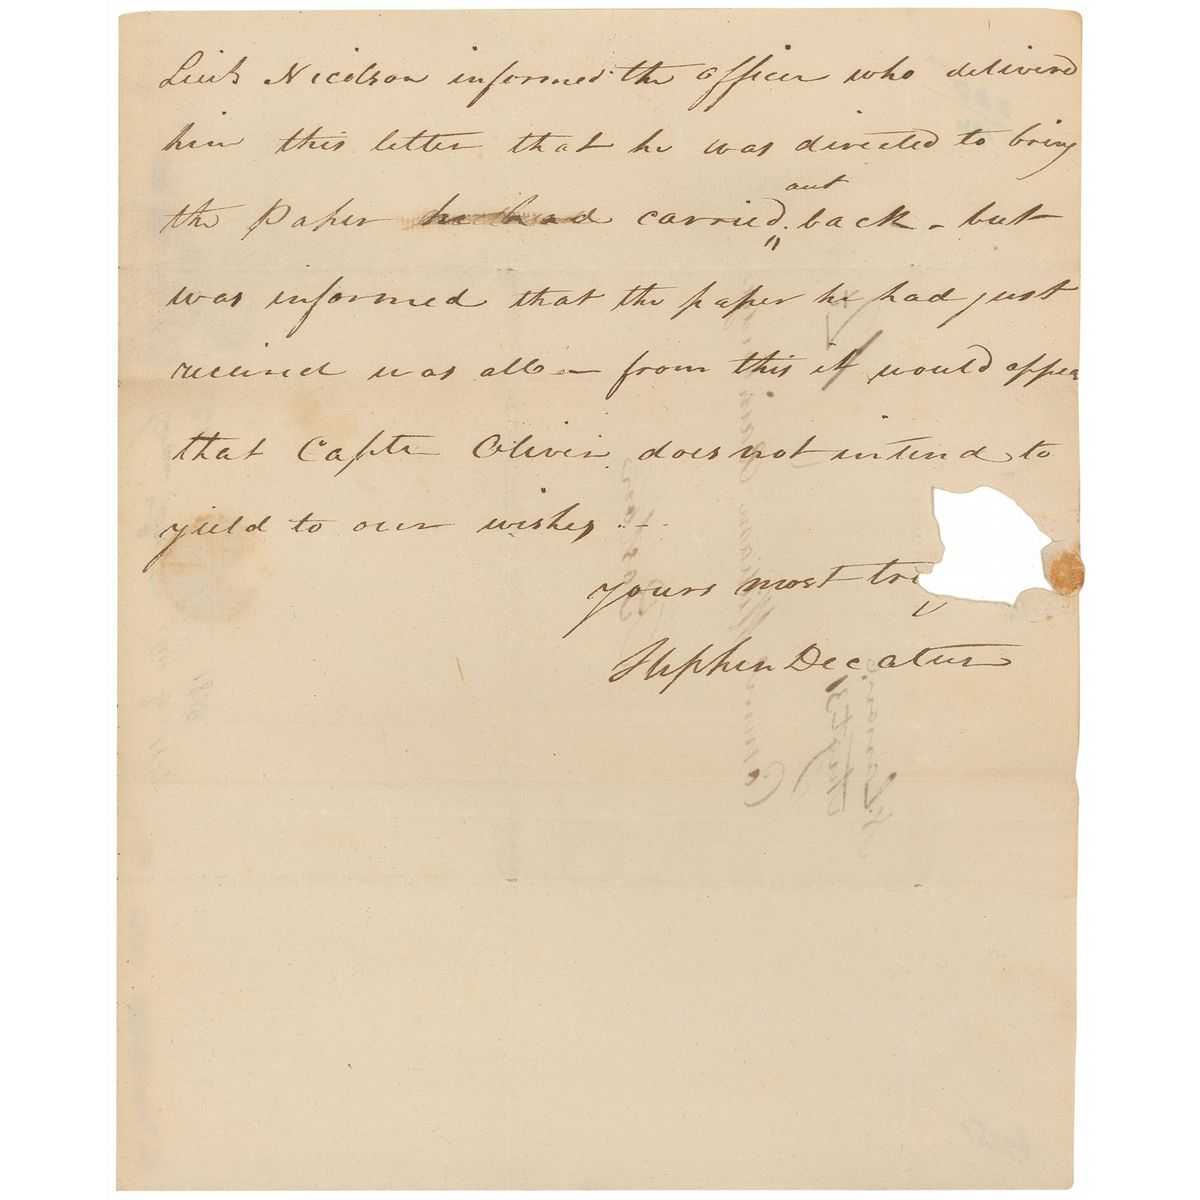 Lieut Nicolson informed the officer who delivered
him this letter that he was directed to bring
the Paper he had carried out back - but
was informed that the paper he had just
received was all - from this it would appear
that Captn Oliver does not intend to
yield to our wishes . -
yours most
Stephen Decatur